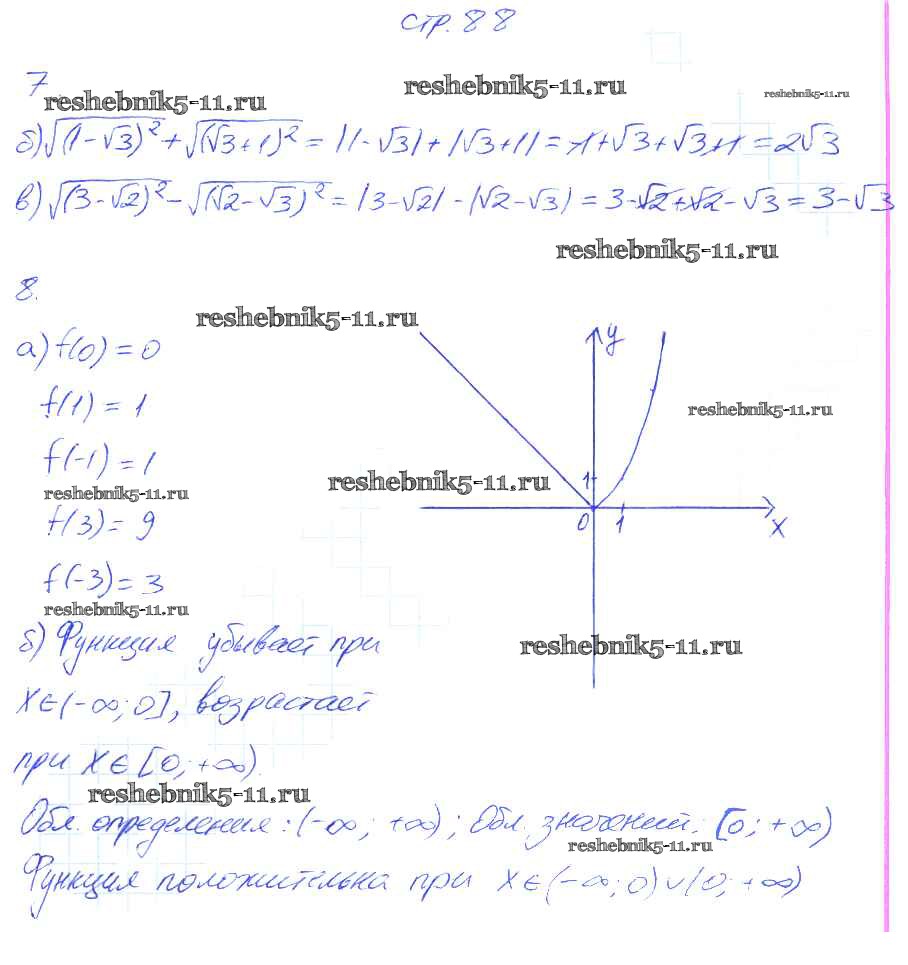 стр. 88
7
reshebnik5-11.ru
reshebnik5-11.ru
reshebnik5-11.ru
б) √(1-√3)² + √(√3+1)² = |1-√3| + |√3+1| = -1+√3+√3+1 = 2√3
в) √(3-√2)² - √(√2-√3)² = |3-√2| - |√2-√3| = 3-√2+√2-√3 = 3-√3
reshebnik5-11.ru
8.
reshebnik5-11.ru
y
а) f(0) = 0
f(1) = 1
reshebnik5-11.ru
f(-1) = 1
reshebnik5-11.ru
1
reshebnik5-11.ru
f(3) = 9
0 1 x
f(-3) = 3
reshebnik5-11.ru
б) Функция убывает при
reshebnik5-11.ru
x∈(-∞; 0], возрастает
при x∈[0; +∞).
reshebnik5-11.ru
Обл. определения: (-∞; +∞); Обл. значений: [0; +∞)
reshebnik5-11.ru
Функция положительна при x∈(-∞; 0)∪(0; +∞)